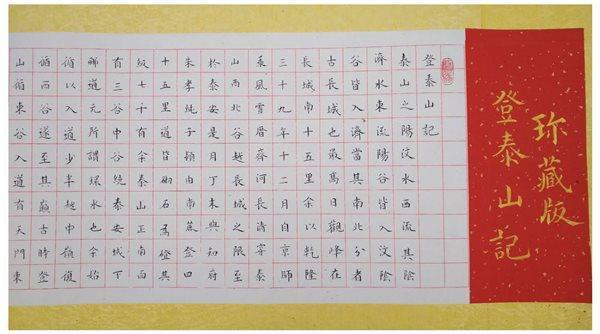 珍藏版
登泰山記
登泰山記
泰山之陽汶水西流其陰
濟水東流陽谷皆入汶陰
谷皆入濟當其南北分者
古長城也最高日觀峰在
長城南十五里余以乾隆
三十九年十二月自京師
乘風雪歷齊河長清穿泰
山西北谷越長城之限至
於泰安是月丁未與知府
朱孝純子潁由南麓登四
十五里道皆砌石為磴其
級七千有余泰山正南面
有三谷中谷繞泰安城下
酈道元所謂環水也余始
循以入道少半越中嶺復
循西谷遂至其巔古時登
山循東谷入道有天門東